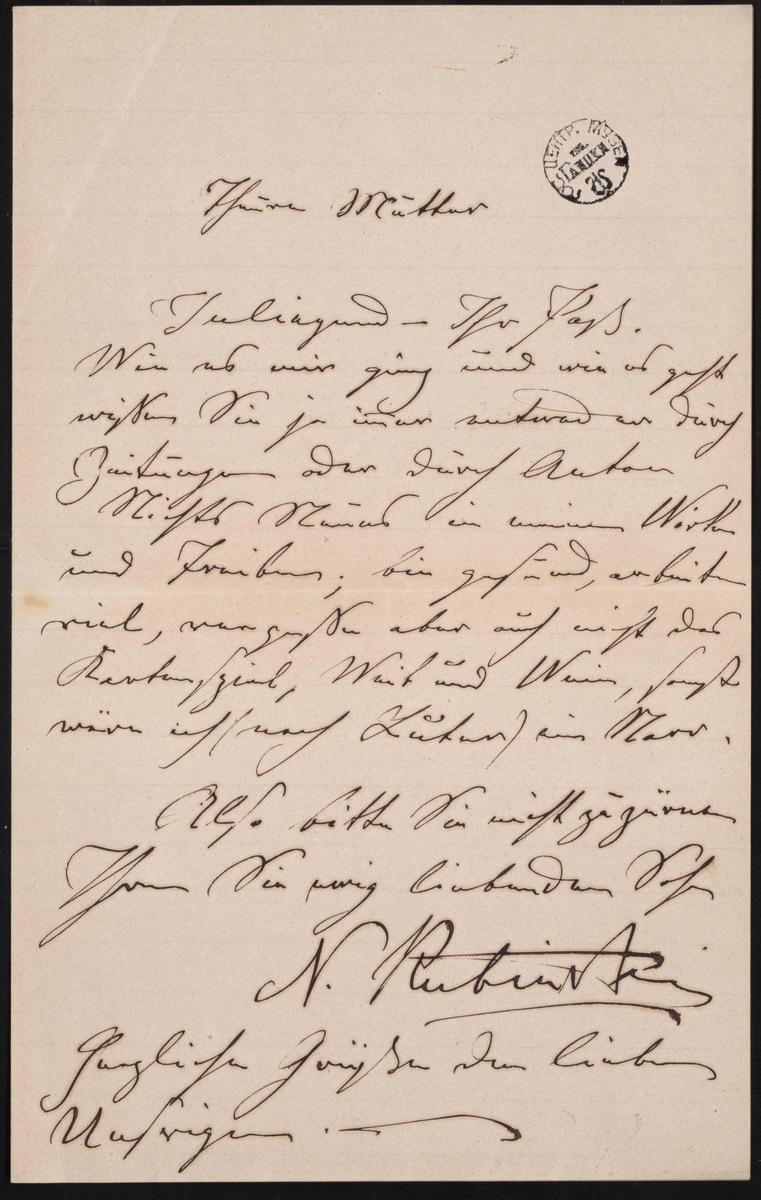 ЦЕНТР. МУЗЕЙ
Theure Mutter
Inliegend — Ihr Paß.
Wie es mir ging und wie es geht
wißen Sie ja immer entweder durch
Zeitungen oder durch Anton
Nichts Neues in meinem Wirken
und Treiben; bin gesund, arbeite
viel, vergeße aber auch nicht das
Kartenspiel, Weib und Wein, sonst
wäre ich (nach Luther) ein Narr.
Also bitte Sie nicht zu zürnen
Ihrem Sie ewig liebenden Sohn
N. Rubinstein
Herzliche Grüße den lieben
Unsrigen. —